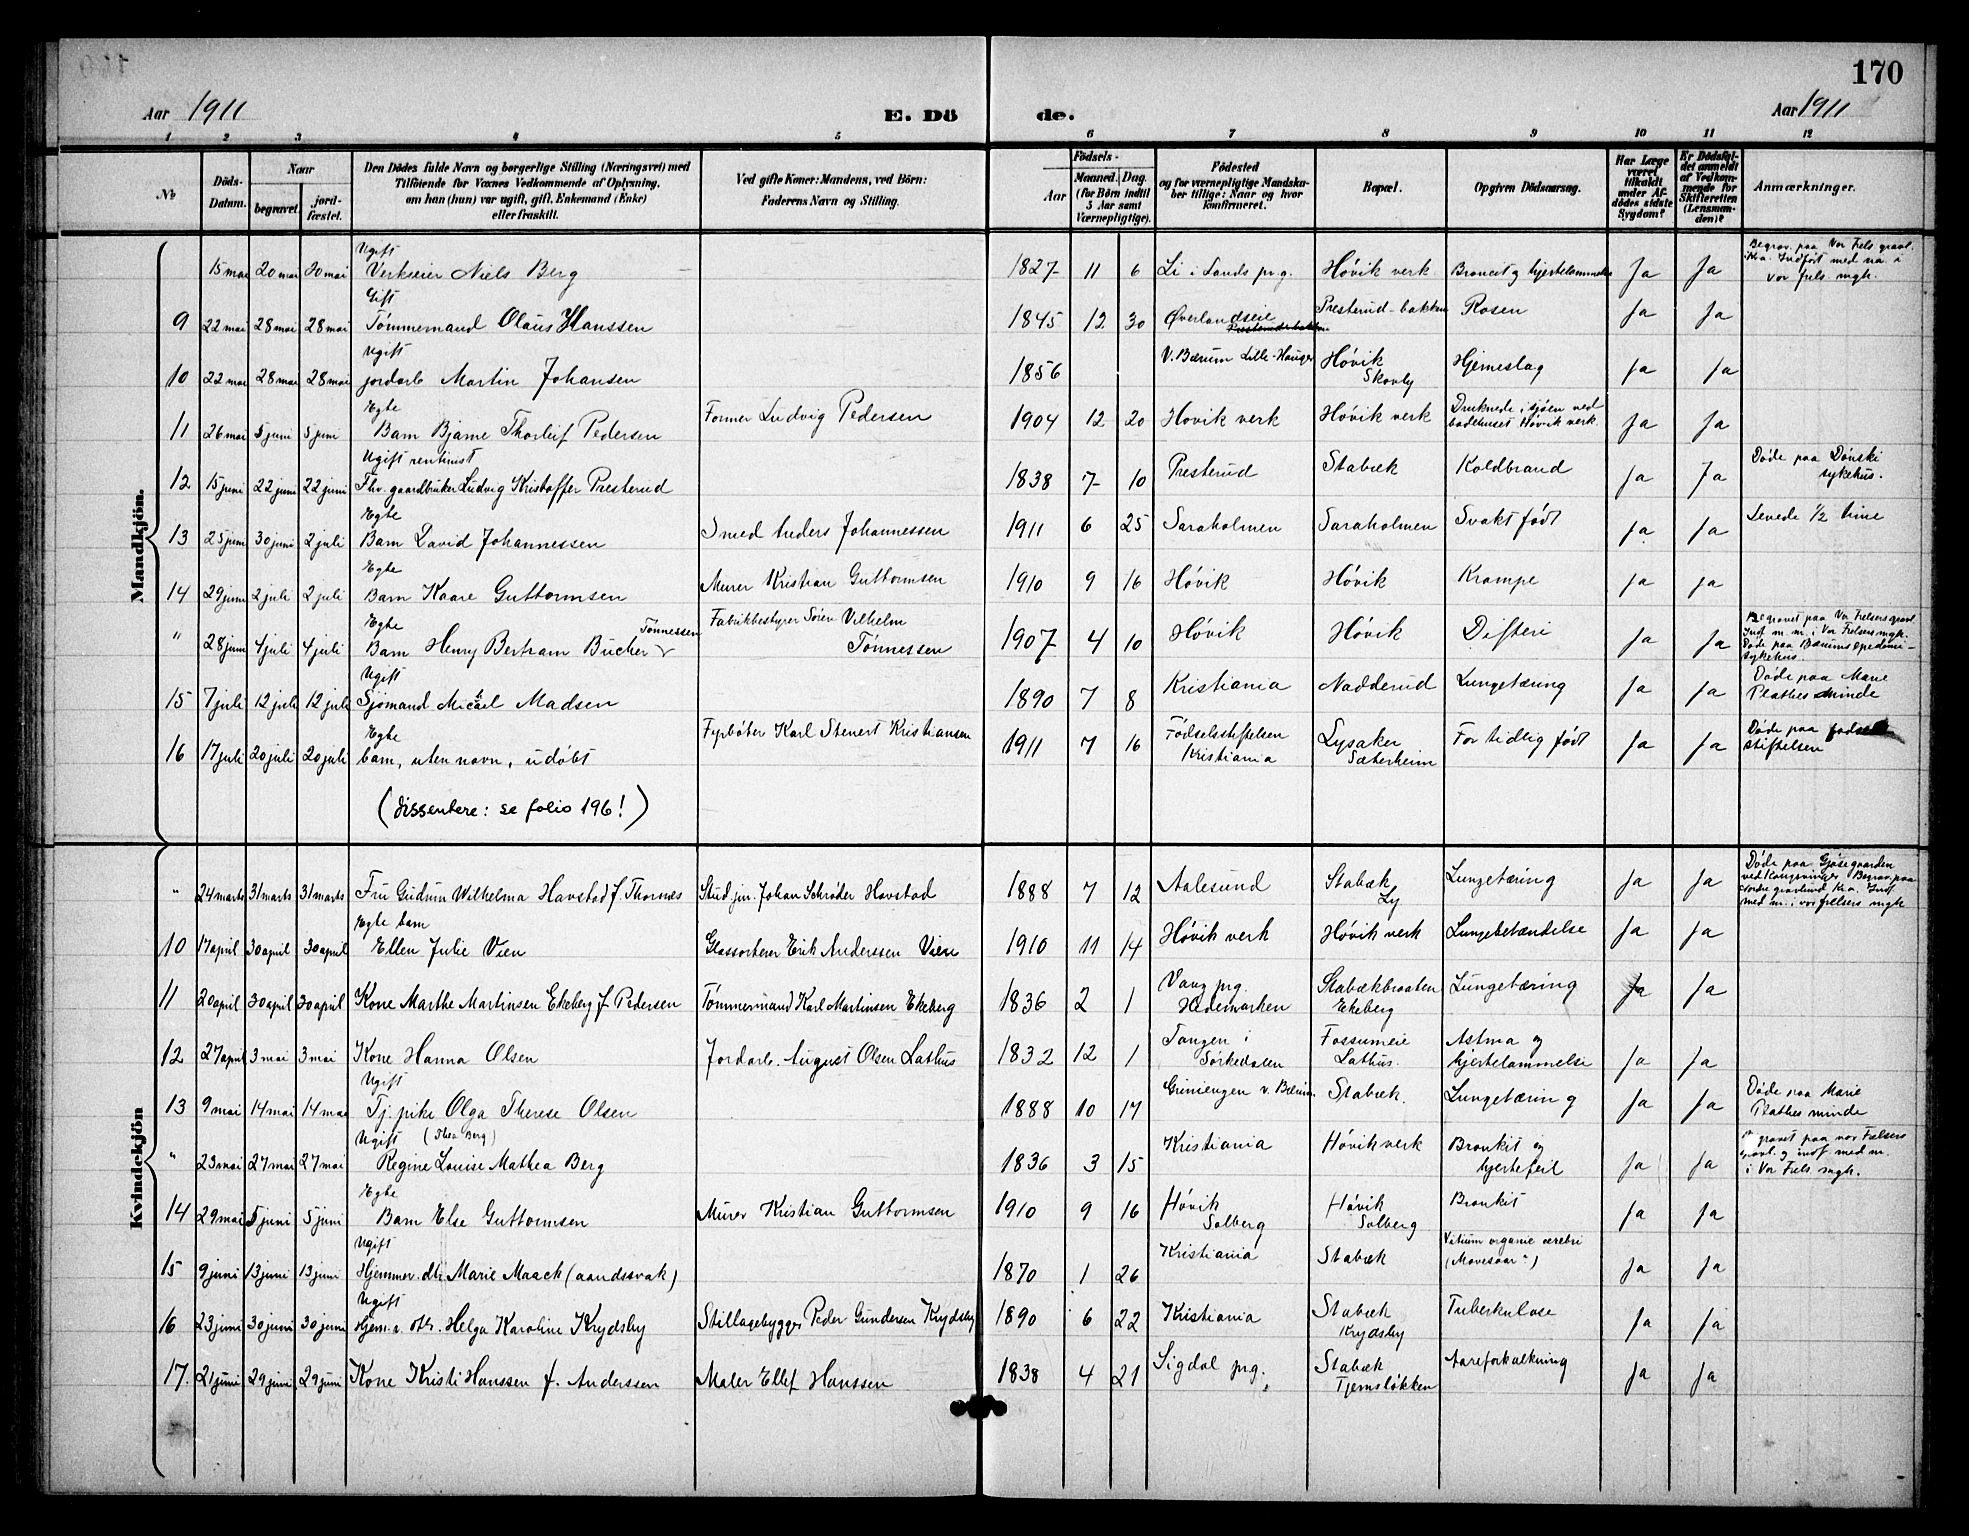 170
Aar 1911
E. Dö
de.
Aar 1911
1 2 3 4 5 6 7 8 9 10 11 12
№
Döds-Datum.
Naar
begravet.
jord-fæstet.
Den Dödes fulde Navn og borgerlige Stilling (Næringsvei) med
Tilföiende for Voxnes Vedkommende af Oplysning,
om han (hun) var ugift, gift, Enkemand (Enke)
eller fraskilt.
Ved gifte Koner: Mandens, ved Börn:
Faderens Navn og Stilling.
Aar
Födsels-
Maaned. Dag.
(for Børn indtil
5 Aar samt
Værnepligtige).
Födested
og for værnepligtige Mandska-
ber tillige: Naar og hvor
konfirmeret.
Bopæl.
Opgiven Dödsaarsag.
Har Læge
været
tilkaldt
under Af-
dödes sidste
Sygdom?
Er Dödsfal-
det anmeldt
af Vedkom-
mende for
Skifteretten
(Lensman-
den)?
Anmærkninger.
Mandkjön.
Ugift
15 mai 20 mai 20 mai Verkseier Niels Berg 1827 11 6 Li i Lands prg. Høvik verk Broncit og hjertelammelse Ja Ja
Begrav. paa Vor Frels gravl.
Kra. Indført med na. i
Vor frels. mgh.
Gift
9 22 mai 28 mai 28 mai Tømmermand Olaus Hanssen 1845 12 30 Øverlandseie Presterud-bakken Rosen Ja Ja
Ugift
10 22 mai 28 mai 28 mai jordarb Martin Johansen 1856 V. Bærum Lille-Hauger Høvik Skovly Hjerneslag Ja Ja
Egte
11 26 mai 5 juni 5 juni Barn Bjarne Thorleif Pedersen Former Ludvig Pedersen 1904 12 20 Høvik verk Høvik verk Druknede i sjøen ved
badehuset Høvik verk. Ja Ja
Ugift rentinist
12 15 juni 22 juni 22 juni Fhv. gaardbruker Ludvig Kristoffer Presterud 1838 7 10 Presterud Stabæk Koldbrand Ja Ja Døde paa Dønski
sykehus.
Egte
13 25 juni 30 juni 2 juli Barn David Johannessen Smed Anders Johannessen 1911 6 25 Saraholmen Saraholmen Svakt født Ja Ja Levede 1/2 time
Egte
14 29 juni 2 juli 2 juli Barn Kaare Guttormsen Murer Kristian Guttormsen 1910 9 16 Høvik Høvik Krampe Ja Ja
Egte
" 28 juni 4 juli 4 juli Barn Henry Bertram Bucher Tønnessen Fabrikbestyrer Søren Vilhelm
Tønnessen 1907 4 10 Høvik Høvik Difteri Ja Ja
Begravet paa Vor Frelsers gravl.
Indf m. m. i Vor Frelsers mgh.
Døde paa Bærums epidemi-
sykehus.
Ugift
15 7 juli 12 juli 12 juli Sjømand Micael Madsen 1890 7 8 Kristiania Nadderud Lungetæring Ja Ja Døde paa Marie
Plathes minde
Egte
16 17 juli 20 juli 20 juli barn, uten navn, udøbt Fyrbøter Karl Stenert Kristiansen 1911 7 16 Fødselsstiftelsen
Kristiania Lysaker
Sæterheim For tidlig født Ja Ja Døde paa fødsels
stiftelsen
(dissentere: se folio 196!)
Kvindekjön
" 24 marts 31 marts 31 marts Fru Gudrun Wilhelma Havstad f. Thornes Stud. jur. Johan Schrøder Havstad 1888 7 12 Aalesund Stabæk
Ly Lungetæring Ja Ja
Døde paa Gjøsegaarden
ved Kongsvinger Begrav. paa
Nordre gravlund Kra. Indf
med m. i vor frelsers mgh
Egte barn
10 17 april 30 april 30 april Ellen Julie Vien Glassorterer Erik Anderssen Vien 1910 11 14 Høvik verk Høvik verk Lungebetændelse Ja Ja
11 20 april 30 april 30 april Kone Marthe Martinsen Ekeberg f Pedersen Tømmermand Karl Martinsen Ekeberg 1836 2 1 Vang prg.
Hedemarken Stabækbraaten
Ekeberg Lungetæring Ja Ja
12 27 april 3 mai 3 mai Kone Hanna Olsen Jordarb. August Olsen Lathus 1832 12 1 Tangen i
Sørkedalen Fossumeie
Lathus. Astma og
hjertelammelse Ja Ja
Ugift
13 9 mai 14 mai 14 mai Tj. pike Olga Therese Olsen 1888 10 17 Griniengen v. Bærum Stabæk. Lungetæring Ja Ja Døde paa Marie
Plathes minde
Ugift (Thea Berg)
" 23 mai 27 mai 27 mai Regine Louise Mathea Berg 1836 3 15 Kristiania Høvik verk Bronkit og
hjertefeil Ja Ja
Begravet paa vor Frelsers
gravl. og indf med m.
i Vor Frels mgh.
Egte
14 29 mai 5 juni 5 juni Barn Else Guttormsen Murer Kristian Guttormsen 1910 9 16 Høvik
Solberg Høvik
Solberg Bronkit Ja Ja
Ugift
15 9 juni 13 juni 13 juni Hjemmev. dtr Marie Maack (aandssvak) 1870 1 26 Kristiania Stabæk Vitium organic cerebri Ja Ja
Ugift
16 23 juni 30 juni 30 juni Hjem.v. dtr. Helga Karoline Krydsby Stillagebygger Peder Gundersen Krydsby 1890 6 22 Kristiania Stabæk
Krydsby Tuberkulose Ja Ja
17. 21 juni 29 juni 29 juni Kone Kristi Hanssen f. Anderssen Maler Ellef Hanssen 1838 4 21 Sigdal prg. Stabæk
Tjernsløkken Aareforkalkning Ja Ja